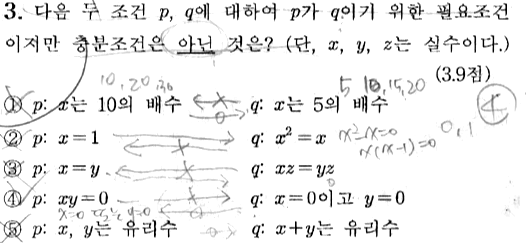 3. 다음 두 조건 p, q에 대하여 p가 q이기 위한 필요조건
이지만 충분조건은 아닌 것은? (단, x, y, z는 실수이다.)
(3.9점)
10, 20, 30
5, 10, 15, 20
① p: x는 10의 배수 q: x는 5의 배수
② p: x=1 q: x²=x x²-x=0 0, 1
x(x-1)=0
③ p: x=y q: xz=yz
④ p: xy=0 q: x=0이고 y=0
x=0 또는 y=0
⑤ p: x, y는 유리수 q: x+y는 유리수